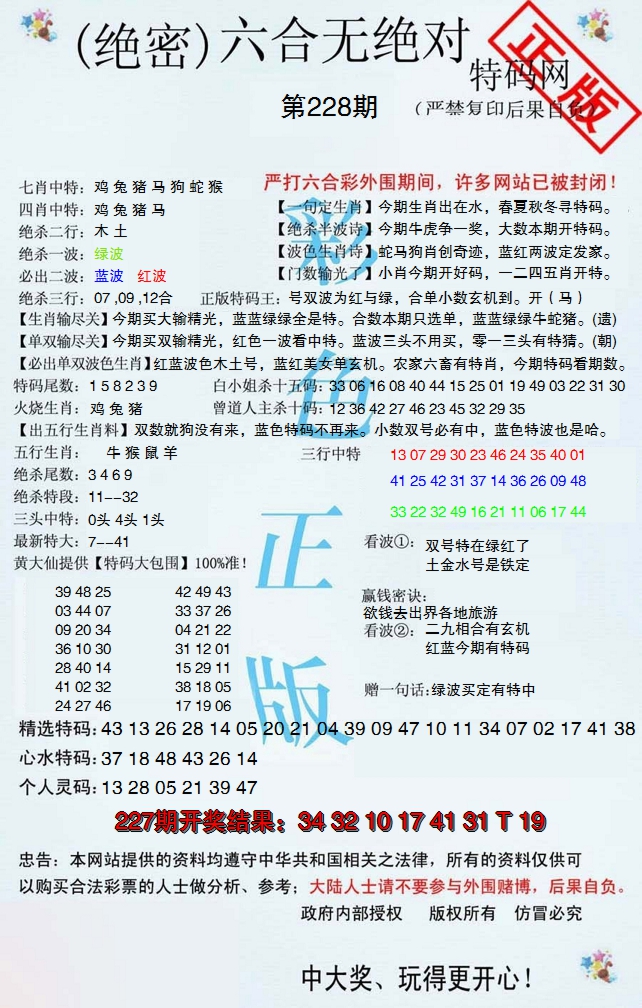 (绝密)六合无绝对
特码网
正版
第228期
(严禁复印后果自负)
七肖中特：鸡 兔 猪 马 狗 蛇 猴
严打六合彩外围期间，许多网站已被封闭！
四肖中特：鸡 兔 猪 马
【一句定生肖】今期生肖出在水，春夏秋冬寻特码。
绝杀二行：木 土
【绝杀半波诗】今期牛虎争一奖，大数本期开特码。
绝杀一波：绿波
【波色生肖诗】蛇马狗肖创奇迹，蓝红两波定发家。
必出二波：蓝波 红波
【门数输光了】小肖今期开好码，一二四五肖开特。
绝杀三行：07 ,09 ,12合
正版特码王：号双波为红与绿，合单小数玄机到。开（ 马 ）
【生肖输尽关】今期买大输精光，蓝蓝绿绿全是特。合数本期只选单，蓝蓝绿绿牛蛇猪。(遗)
【单双输尽关】今期买双输精光，红色一波看中特。蓝波三头不用买，零一三头有特猜。(朝)
【必出单双波色生肖】红蓝波色木土号，蓝红美女单玄机。农家六畜有特肖，今期特码看期数。
特码尾数：1 5 8 2 3 9
白小姐杀十五码：33 06 16 08 40 44 15 25 01 19 49 03 22 31 30
火烧生肖：鸡 兔 猪
曾道人主杀十码：12 36 42 27 46 23 45 32 29 35
【出五行生肖料】双数就狗没有来，蓝色特码不再来。小数双号必有中，蓝色特波也是哈。
五行生肖： 牛 猴 鼠 羊
三行中特 13 07 29 30 23 46 24 35 40 01
绝杀尾数：3 4 6 9
41 25 42 31 37 14 36 26 09 48
绝杀特段：11--32
33 22 32 49 16 21 11 06 17 44
三头中特：0头 4头 1头
最新特大：7--41
看波①：双号特在绿红了
土金水号是铁定
黄大仙提供【特码大包围】100%准！
39 48 25 42 49 43
03 44 07 33 37 26
09 20 34 04 21 22
36 10 30 31 12 01
28 40 14 15 29 11
41 02 32 38 18 05
24 27 46 17 19 06
赢钱密诀：
欲钱去出界各地旅游
看波②：二九相合有玄机
红蓝今期有特码
赠一句话:绿波买定有特中
精选特码:43 13 26 28 14 05 20 21 04 39 09 47 10 11 34 07 02 17 41 38
心水特码:37 18 48 43 26 14
个人灵码:13 28 05 21 39 47
227期开奖结果：34 32 10 17 41 31 T 19
忠告：本网站提供的资料均遵守中华共和国相关之法律，所有的资料仅供可
以购买合法彩票的人士做分析、参考；大陆人士请不要参与外围赌博，后果自负。
政府内部授权 版权所有 仿冒必究
中大奖、玩得更开心！
彩色正版